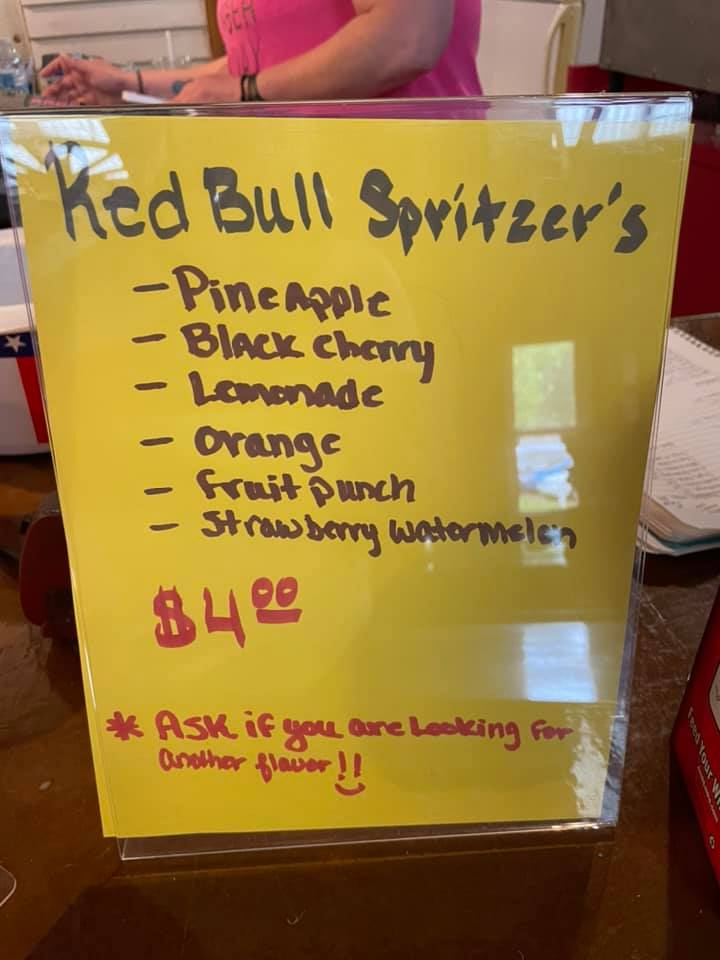 Red Bull Spritzer's
- Pineapple
- Black cherry
- Lemonade
- Orange
- fruit punch
- Strawberry watermelon
$4.00
* Ask if you are Looking For
another flavor!!